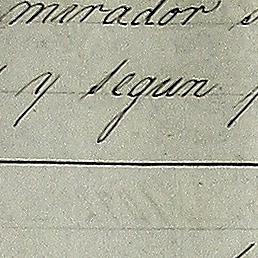 mirador
y segun